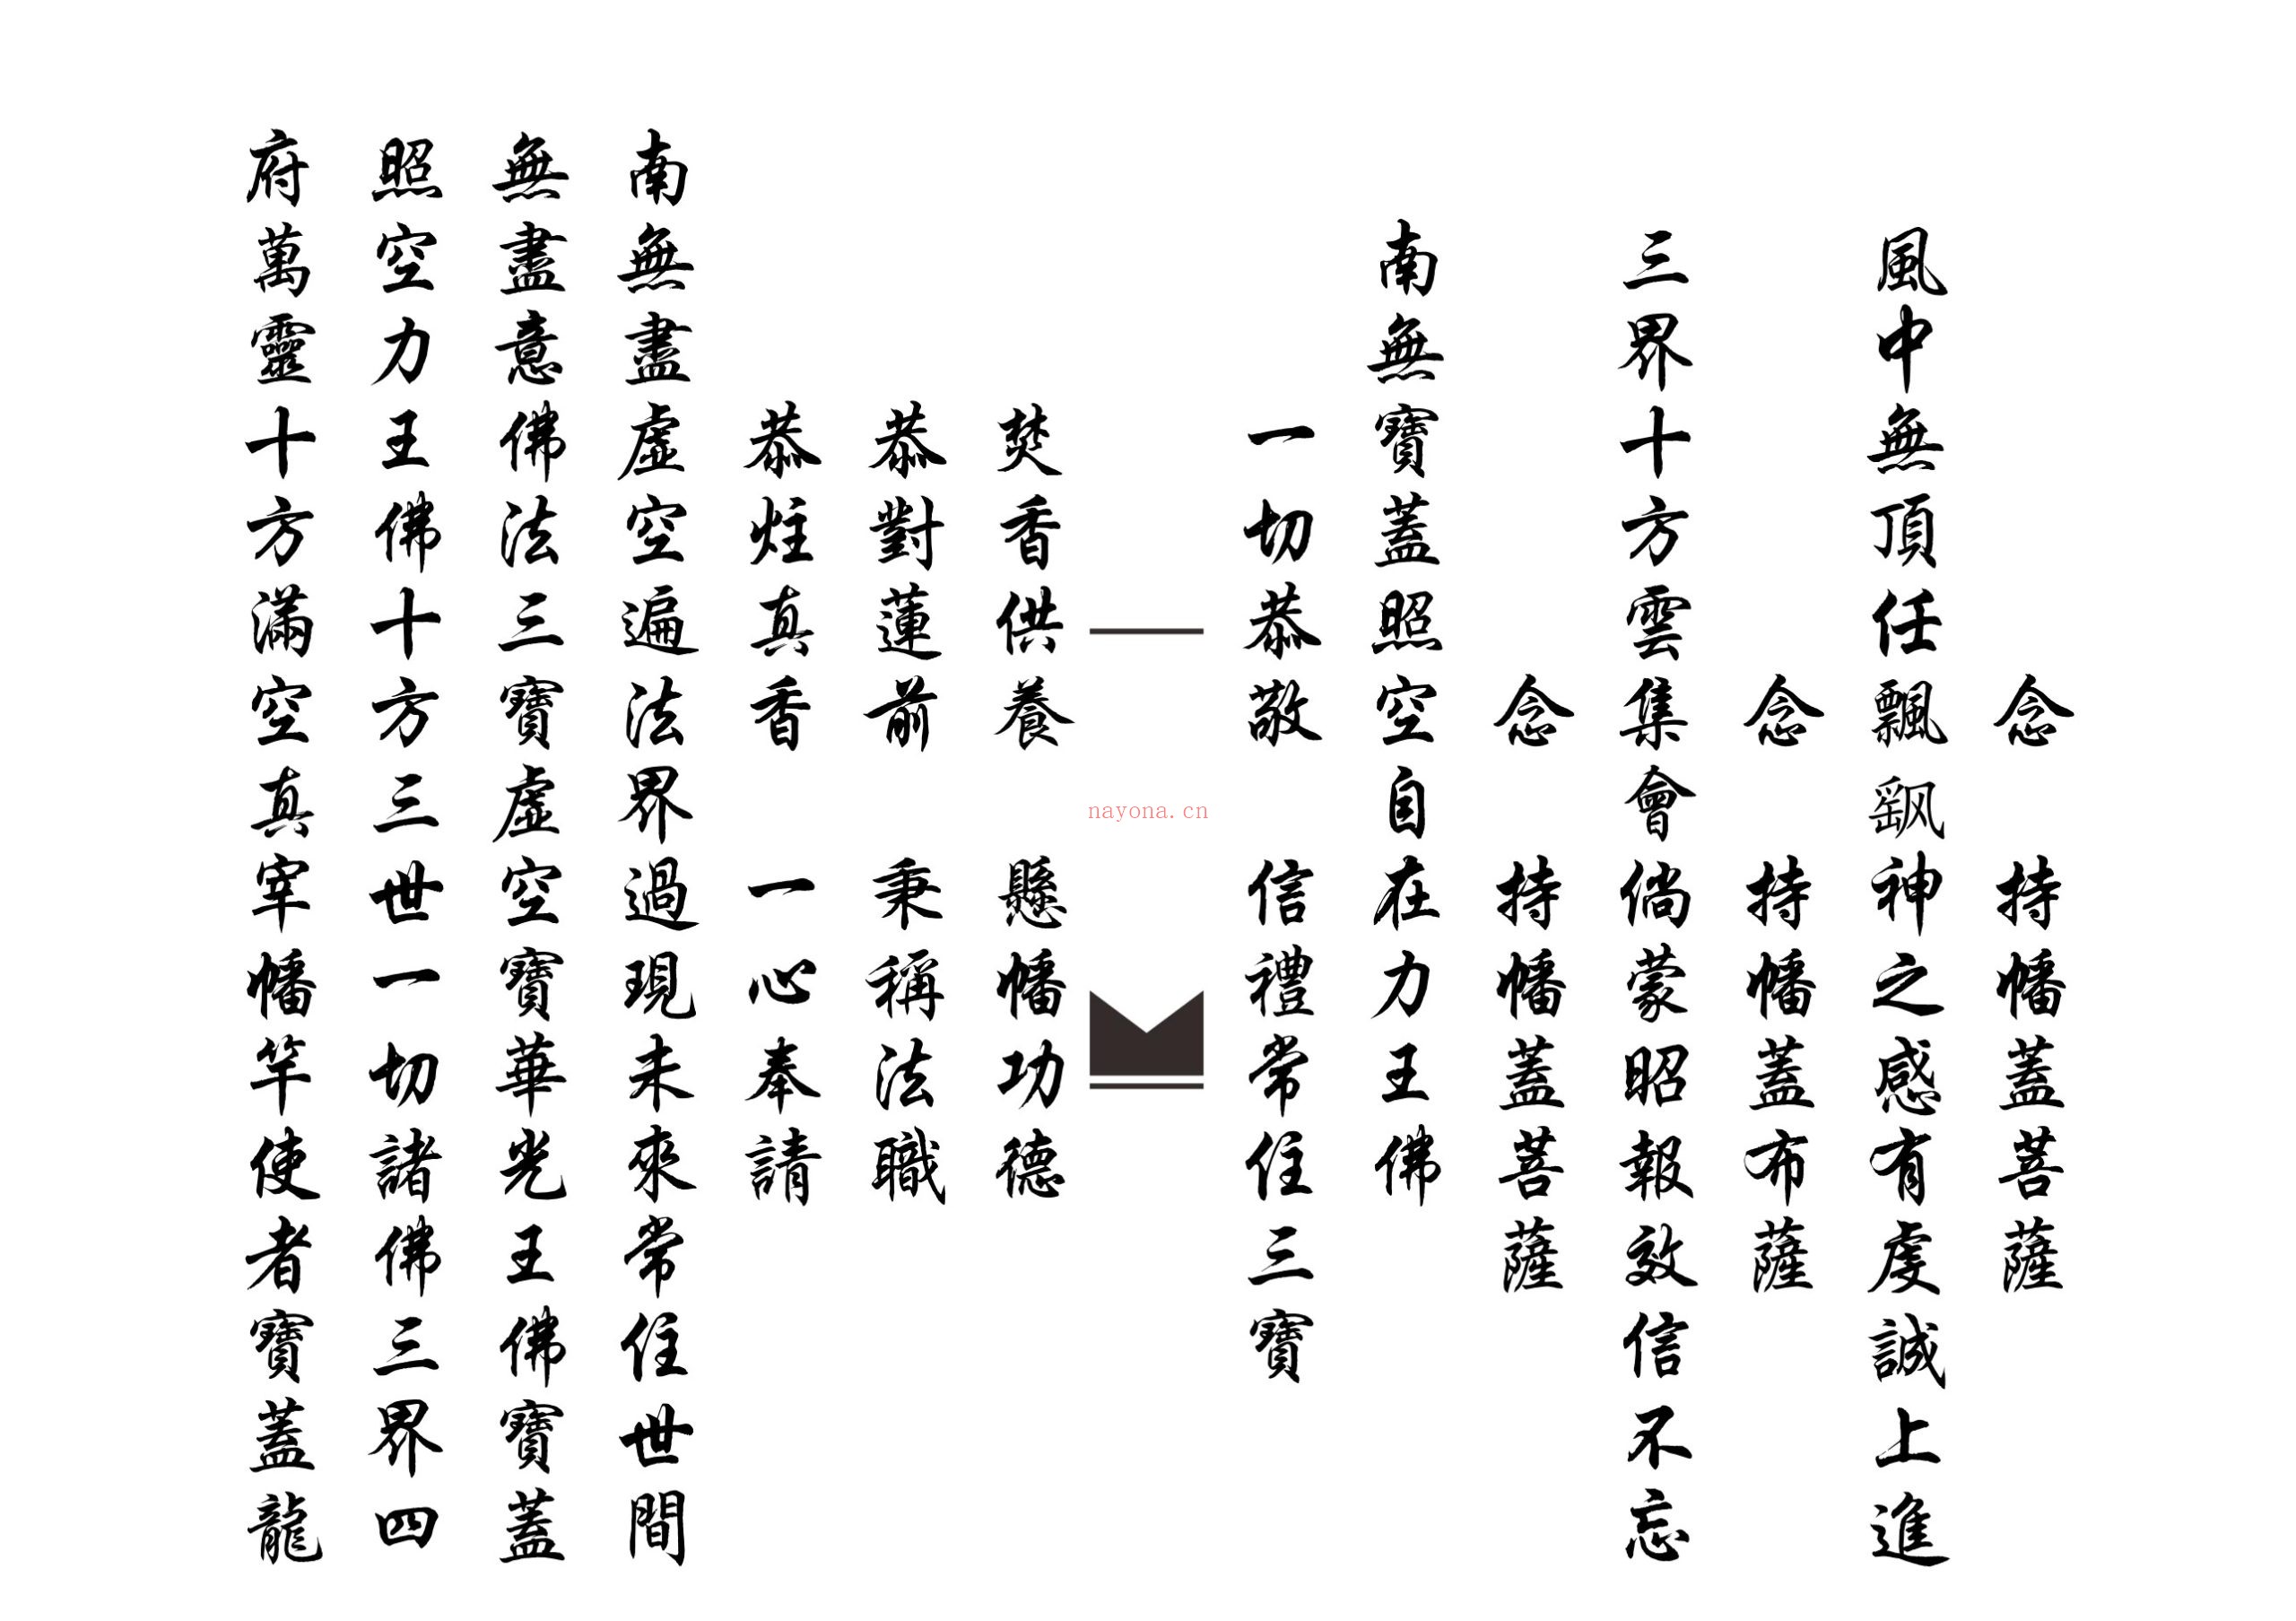 念　持幡蓋菩薩
風中無頂任飄颻神之感有虔誠上進
念　持幡蓋布薩
三界十方雲集會倘蒙昭報效信不忘
念　持幡蓋菩薩
南無寶蓋照空自在力王佛
一切恭敬　信禮常住三寶
焚香供養　懸幡功德
恭對蓮前　秉稱法職
恭炷真香　一心奉請
南無盡虛空遍法界過現未來常住世間
無盡意佛法三寶虛空寶華光王佛寶蓋
照空力王佛十方三世一切諸佛三界四
府萬靈十方滿空真宰幡竿使者寶蓋龍
nayona.cn